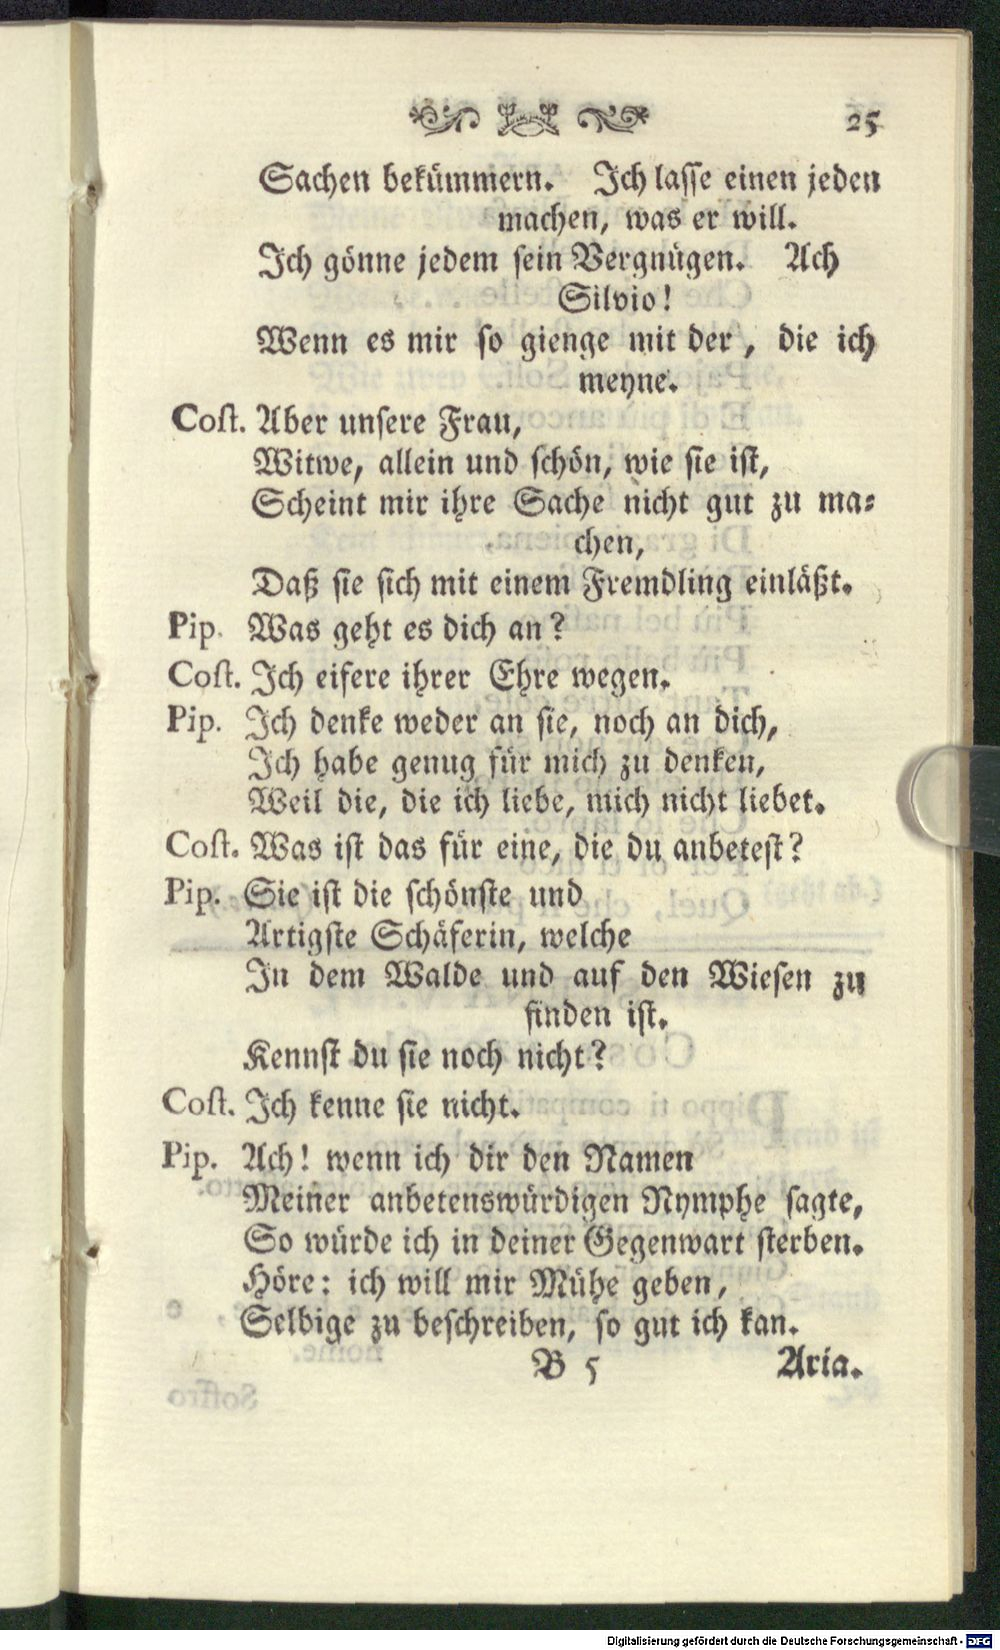 25
Sachen bekümmern. Ich lasse einen jeden
machen, was er will.
Ich gönne jedem sein Vergnügen. Ach
Silvio!
Wenn es mir so gienge mit der, die ich
meyne.
Cost. Aber unsere Frau,
Witwe, allein und schön, wie sie ist,
Scheint mir ihre Sache nicht gut zu ma-
chen,
Daß sie sich mit einem Fremdling einläßt.
Pip. Was geht es dich an?
Cost. Ich eifere ihrer Ehre wegen.
Pip. Ich denke weder an sie, noch an dich,
Ich habe genug für mich zu denken,
Weil die, die ich liebe, mich nicht liebet.
Cost. Was ist das für eine, die du anbetest?
Pip. Sie ist die schönste und
Artigste Schäferin, welche
In dem Walde und auf den Wiesen zu
finden ist.
Kennst du sie noch nicht?
Cost. Ich kenne sie nicht.
Pip. Ach! wenn ich dir den Namen
Meiner anbetenswürdigen Nymphe sagte,
So würde ich in deiner Gegenwart sterben.
Höre: ich will mir Mühe geben,
Selbige zu beschreiben, so gut ich kan.
B 5 Aria.
Digitalisierung gefördert durch die Deutsche Forschungsgemeinschaft - DFG